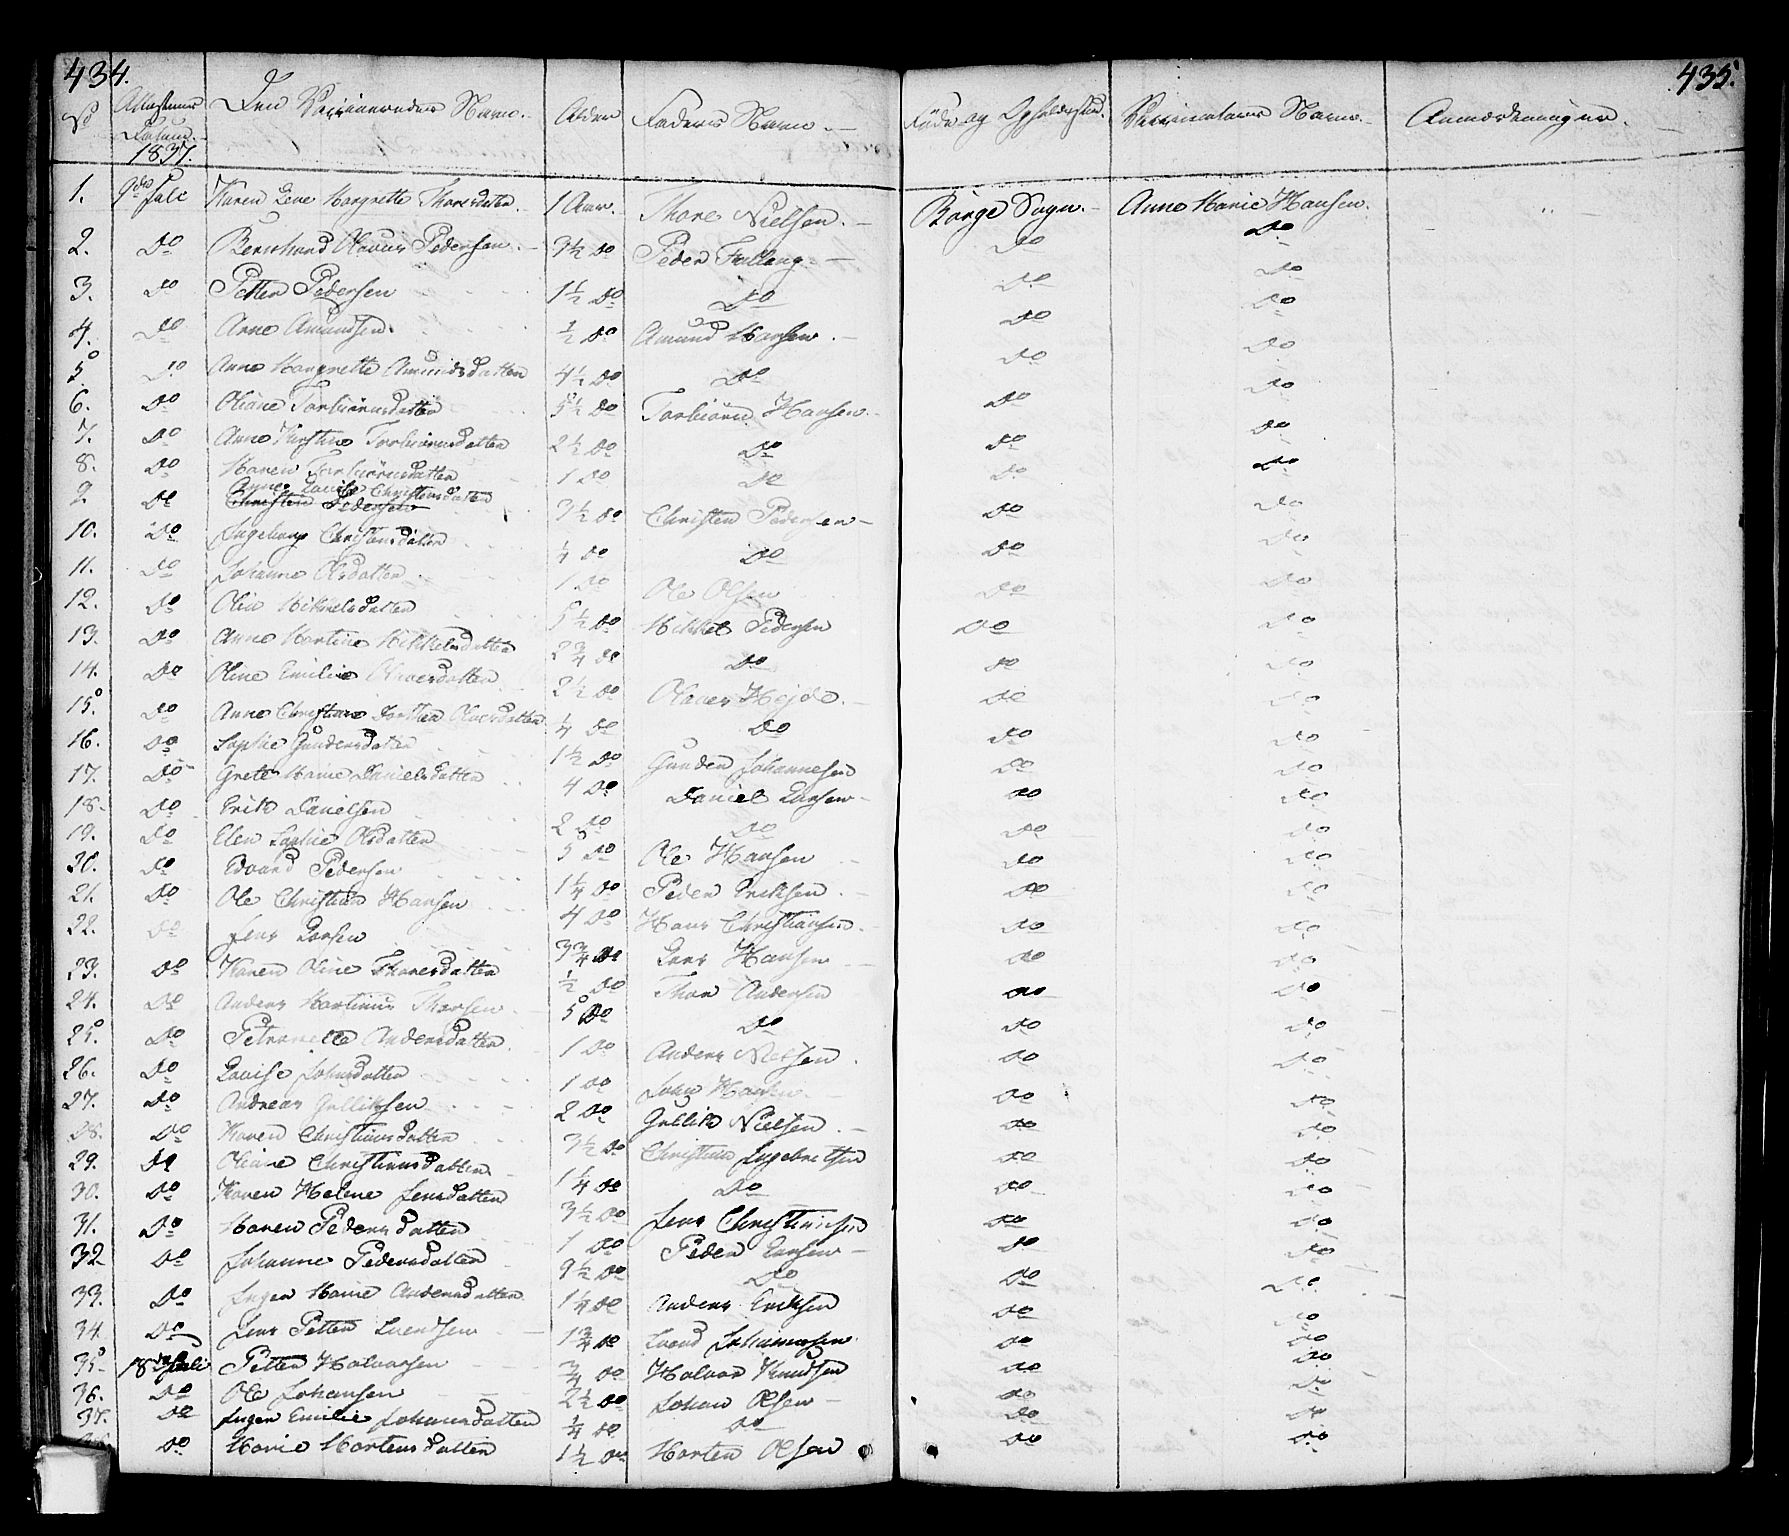 434.
435.
No Attestens Datum. 1837. Den Vaccineredes Navn. Alder Faders Navn. Føde og Opholdssted. Vaccinateurs Navn. Anmærkninger.
1. 9de Juli Karen Lene Margrethe Thoresdatter. 1 Aar. Thore Nielsen. Borge Sogn. Anne Marie Hansen.
2. Do Bernthard Olaus Pedersen. 3½ Do Peder Do Do
3. Do Petter Pedersen 1½ Do Do Do Do
4. Do Arne Amundsen ½ Do Amund Hansen. Do Do
5. Do Anne Margrette Amundsdatter 4½ Do Do Do Do
6. Do Oliane Torbiørnsdatter 5½ Do Torbiørn Hansen. Do Do
7. Do Anne Kirstine Torbiørnsdatter 2½ Do Do Do Do
8. Do Maren Torbiørnsdatter 1 Do Do Do Do
9. Do Anne Louise Christensdatter 3½ Do Christen Pedersen Do Do
Christen Pedersen
10. Do Ingeborg Christensdatter ¼ Do Do Do Do
11. Do Johanne Olsdatter 1 Do Ole Olsen Do Do
12. Do Olia Mikkelsdatter 5½ Do Mikkel Pedersen Do Do
13. Do Anne Martine Mikkelsdatter 2¾ Do Do Do Do
14. Do Oline Emilie Olavesdatter 2½ Do Olaves Hejde. Do Do
15. Do Anne Christiane Dorthea Olavesdatter ¼ Do Do Do Do
16. Do Sophie Gundersdatter 1½ Do Gunder Johannesen Do Do
17. Do Grete Marie Danielsdatter 4 Do Daniel Larsen Do Do
18. Do Erik Danielsen 2 Do Do Do Do
19. Do Elen Sophie Olsdatter 5 Do Ole Hansen Do Do
20. Do Edvard Pedersen 1¼ Do Peder Eriksen. Do Do
21. Do Ole Christian Hansen 4 Do Hans Christiansen. Do Do
22. Do Jens Larsen 3¾ Do Lars Hansen Do Do
23. Do Karen Oline Thoresdatter ½ Do Thor Andersen Do Do
24. Do Anders Martinius Thorsen 5 Do Do Do Do
25. Do Petronelle Andersdatter 1 Do Anders Nielsen. Do Do
26. Do Louise Johnsdatter 1 Do John Hansen Do Do
27. Do Andreas Gulliksen 2 Do Gullik Nielsen. Do Do
28. Do Karen Christiansdatter 3½ Do Christian Ingebretsen Do Do
29. Do Oliane Christiansdatter 1¼ Do Do Do Do
30. Do Karen Helene Jensdatter 3½ Do Jens Christiansen Do Do
31. Do Maren Pedersdatter 1 Do Peder Larsen Do Do
32. Do Johanne Pedersdatter 9½ Do Do Do Do
33. Do Inger Marie Andersdatter 1¼ Do Anders Eriksen Do Do
34. Do Jens Petter 1¾ Do Johannesen Do Do
35. 18de Juli Petter Halvorsen ¾ Do Halvor Knudsen Do Do
36. Do Ole Johansen 2½ Do Johan Olsen Do Do
37. Do Inger Emilie Johansdatter ¼ Do Do Do Do
Do Marie Mortensdatter 1½ Do Morten Olsen Do Do